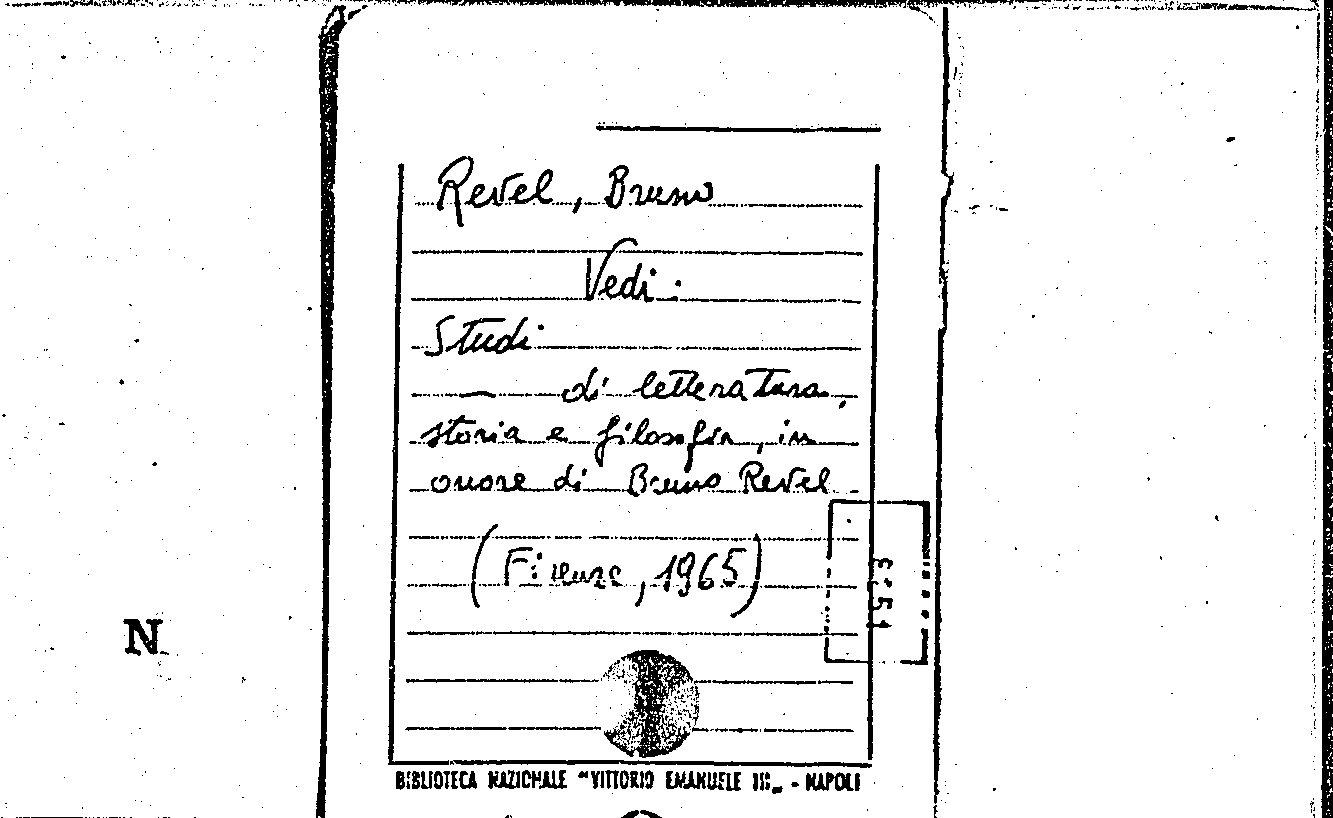 Revel, Bruno
Vedi:
Studi
— di letteratura,
storia e filosofia, in
onore di Bruno Revel
(Firenze, 1965)
N
BIBLIOTECA NAZIONALE "VITTORIO EMANUELE III„ - NAPOLI